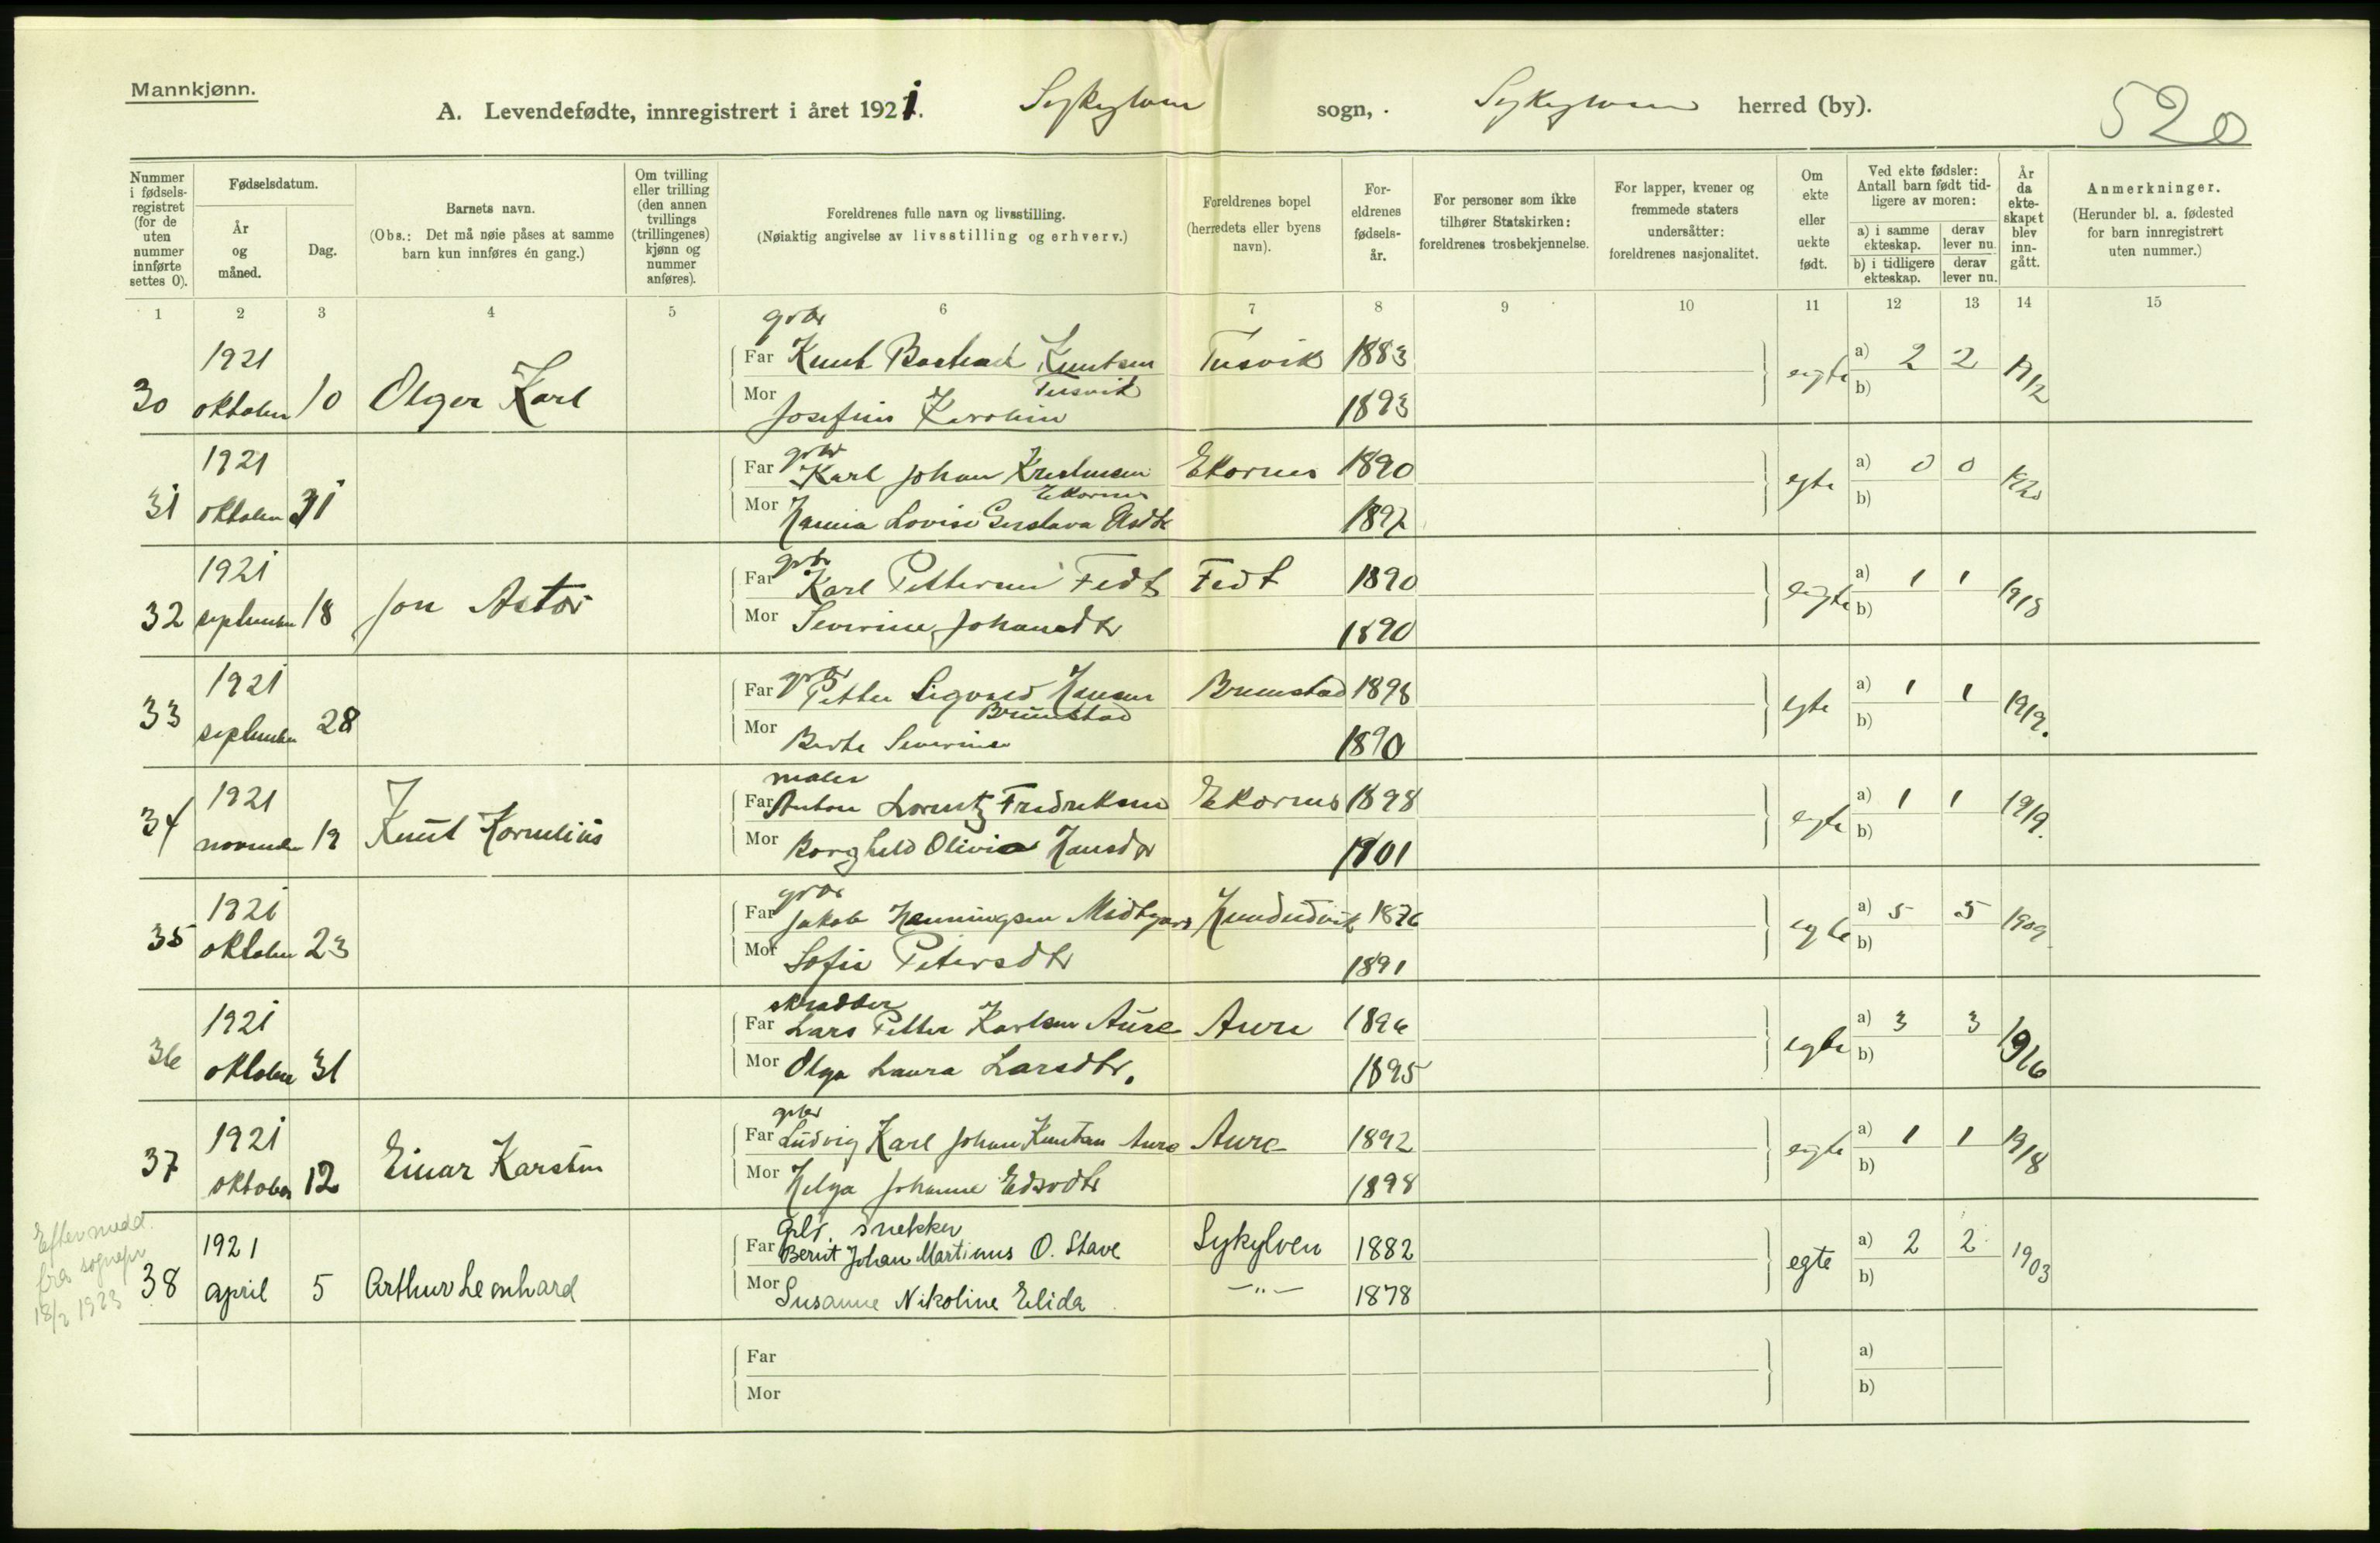 Mannkjønn.
A. Levendefødte, innregistrert i året 1921. Sykylven sogn, . Sykylven herred (by).
520
Nummer i fødselsregistret (for de uten nummer innførte settes 0).
Fødselsdatum.
År og måned.
Dag.
Barnets navn.
(Obs.: Det må nøie påses at samme barn kun innføres én gang.)
Om tvilling eller trilling (den annen tvillings (trillingenes) kjønn og nummer anføres).
Foreldrenes fulle navn og livsstilling.
(Nøiaktig angivelse av livsstilling og erhverv.)
Foreldrenes bopel (herredets eller byens navn).
For-
eldrenes
fødsels-
år.
For personer som ikke tilhører Statskirken: foreldrenes trosbekjennelse.
For lapper, kvener og fremmede staters undersåtter: foreldrenes nasjonalitet.
Om ekte eller uekte født.
Ved ekte fødsler: Antall barn født tidligere av moren:
a) i samme ekteskap. derav lever nu.
b) i tidligere ekteskap. derav lever nu.
År da ekteskapet blev inngått.
Anmerkninger.
(Herunder bl. a. fødested for barn innregistrert uten nummer.)
1 2 3 4 5 6 7 8 9 10 11 12 13 14 15
gbr
1921 Far Knut Knutsen Tusvik 1883 a) 2 2 1912
30 oktober 10 Olger Karl Tusvik egte b)
Mor Josefine Karoline 1893
gbr
1921 Far Karl Johan Ekornes 1890 a) 0 0
31 oktober 31 Ekornes egte b)
Mor Lovise Gustava 1897
gbr
1921 Far Karl Petterson Fedt Fedt 1890 a) 1 1 1918
32 september 18 Jon Astor egte b)
Mor Severine Johansdtr 1890
gbr
1921 Far Petter Sigvald Hansen Brunstad 1898 a) 1 1 1919.
33 september 28 Brunstad egte b)
Mor Berte Severine 1890
maler
1921 Far Anton Lorentz Fredriksen Ekornes 1898 a) 1 1 1919.
34 november 19 Knut Kornelius egte b)
Mor Borghild Olivia Hansdtr 1901
gbr
1921 Far Jakob Henningsen Midtgård Hundeidvik 1876 a) 5 5 1909
35 oktober 23 egte b)
Mor Sofie Petersdtr 1891
skradder
1921 Far Lars Petter Karlsen Aure Aure 1896 a) 3 3 1916
36 oktober 31 egte b)
Mor Olga Laura Larsdtr. 1895
gbr
1921 Far Ludvig Karl Johan Knutsen Aure Aure 1892 a) 1 1 1918
37 oktober 12 Einar Karsten egte b)
Mor Helga Johanne 1898
Eftermedd. fra sognepr 18/2 1923
Gbr. snekker
1921 Far Bernt Johan Martinus O. Stave Sykylven 1882 a) 2 2 1903
38 april 5 Arthur Leonhard egte b)
Mor Susanne Nikoline Elida —"— 1878
Far a)
Mor b)